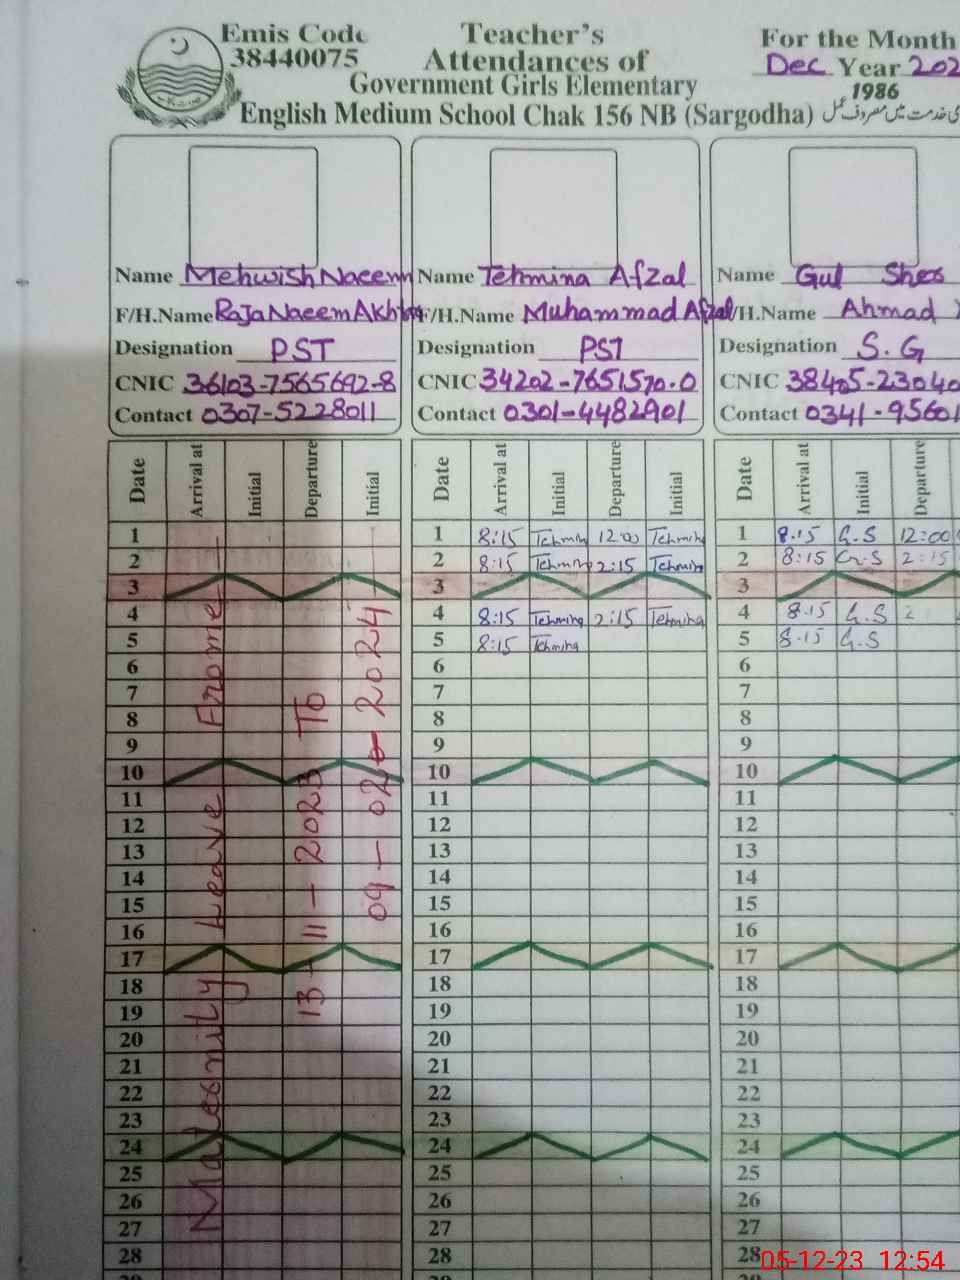 Emis Code
38440075
Teacher's
Attendances of
Government Girls Elementary
English Medium School Chak 156 NB (Sargodha)
For the Month
Dec Year 202
1986
Name Mehwish Naeem
F/H.Name Raja Naeem Akhtar
Designation PST
CNIC 36103-7565692-8
Contact 0307-5228011
Name Tehmina Afzal
F/H.Name Muhammad Afzal
Designation PST
CNIC 34202-7651570-0
Contact 0301-4482901
Name Gul Sher
/H.Name Ahmad
Designation S.G
CNIC 38405-23040
Contact 0341-95601
Date Arrival at Initial Departure Initial
Date Arrival at Initial Departure Initial
Date Arrival at Initial Departure
1 1 8:15 Tehmin 12:00 Tehmin 1 8.15 G.S 12:00
2 2 8:15 Tehmin 2:15 Tehmin 2 8:15 G.S 2:15
3 3 3
4 4 8:15 Tehmina 2:15 Tehmina 4 8.15 G.S 2
5 5 8:15 Tehmina 5 8.15 G.S
6 6 6
7 7 7
8 8 8
9 9 9
10 10 10
11 11 11
12 12 12
13 13 13
14 14 14
15 15 15
16 16 16
17 17 17
18 18 18
19 19 19
20 20 20
21 21 21
22 22 22
23 23 23
24 24 24
25 25 25
26 26 26
27 27 27
28 28 28
Maternity Leave Frome
13-11-2023 To
09-02-2024
05-12-23 12:54